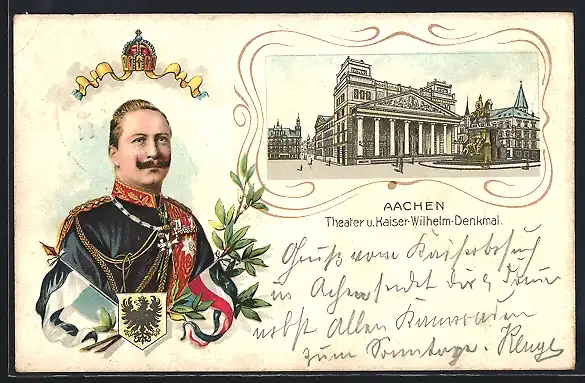 AACHEN
Theater u. Kaiser-Wilhelm-Denkmal.
Gruß vom Kaiserbesuch
in Aachen sendet dir
nebst Allen Kameraden
zum Sonntage.